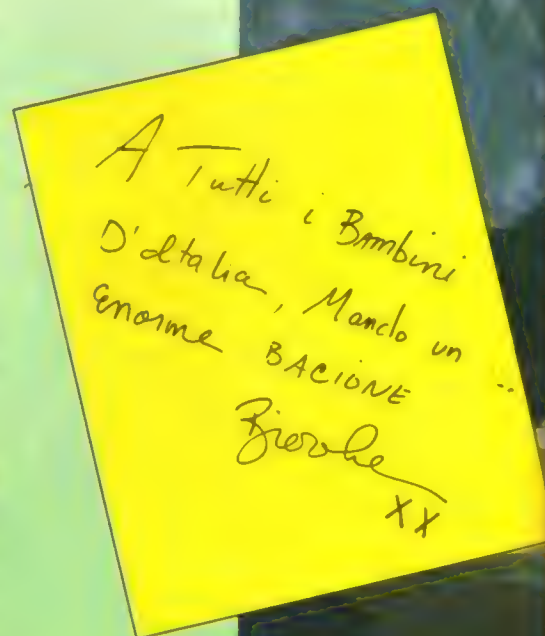 A Tutti i Bambini
D'Italia, Mando un
Enorme BACIONE ..
XX